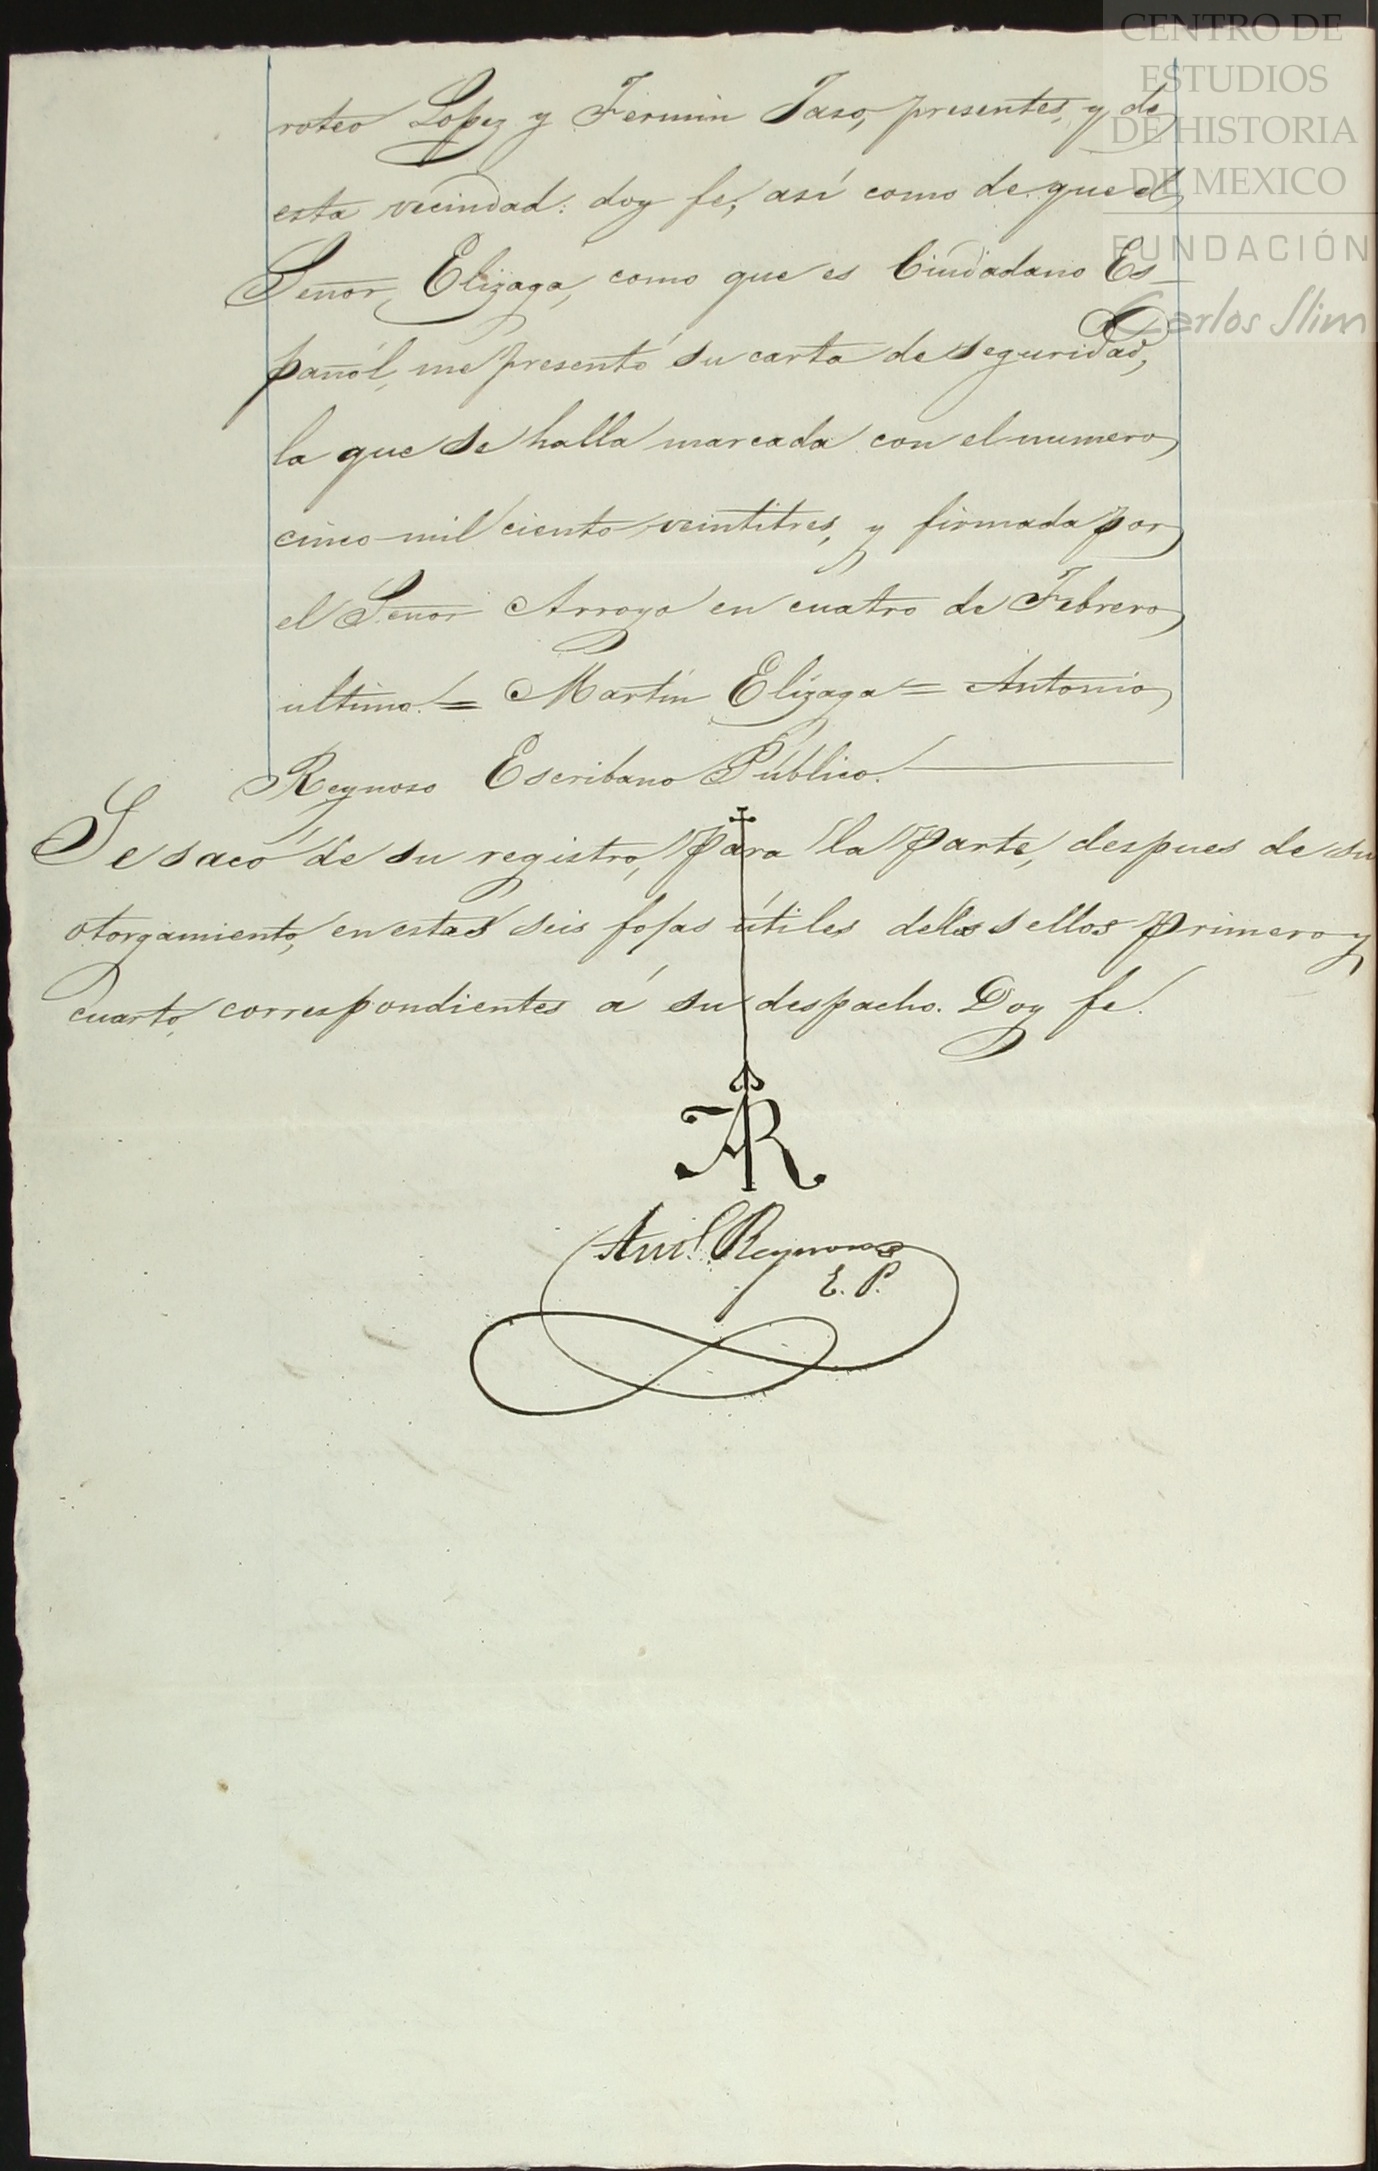 CENTRO DE
ESTUDIOS
DE HISTORIA
DE MEXICO
FUNDACIÓN
Carlos Slim
roteo Lopez y Fermin Jaso, presentes, y de
esta vecindad: doy fe; así como de que el
Señor Elizaga, como que es Ciudadano Es-
pañol, me presentó su carta de seguridad,
la que se halla marcada con el numero
cinco mil ciento veintitres, y firmada por
el Señor Arroyo en cuatro de Febrero
ultimo. = Martin Elizaga = Antonio
Reynoso Escribano Público.
Se sacó de su registro, para la parte, despues de su
otorgamiento, en estas seis fojas útiles de los sellos primero y
cuarto, correspondientes á su despacho. Doy fe.
AR
Ant.º Reynoso
E. P.